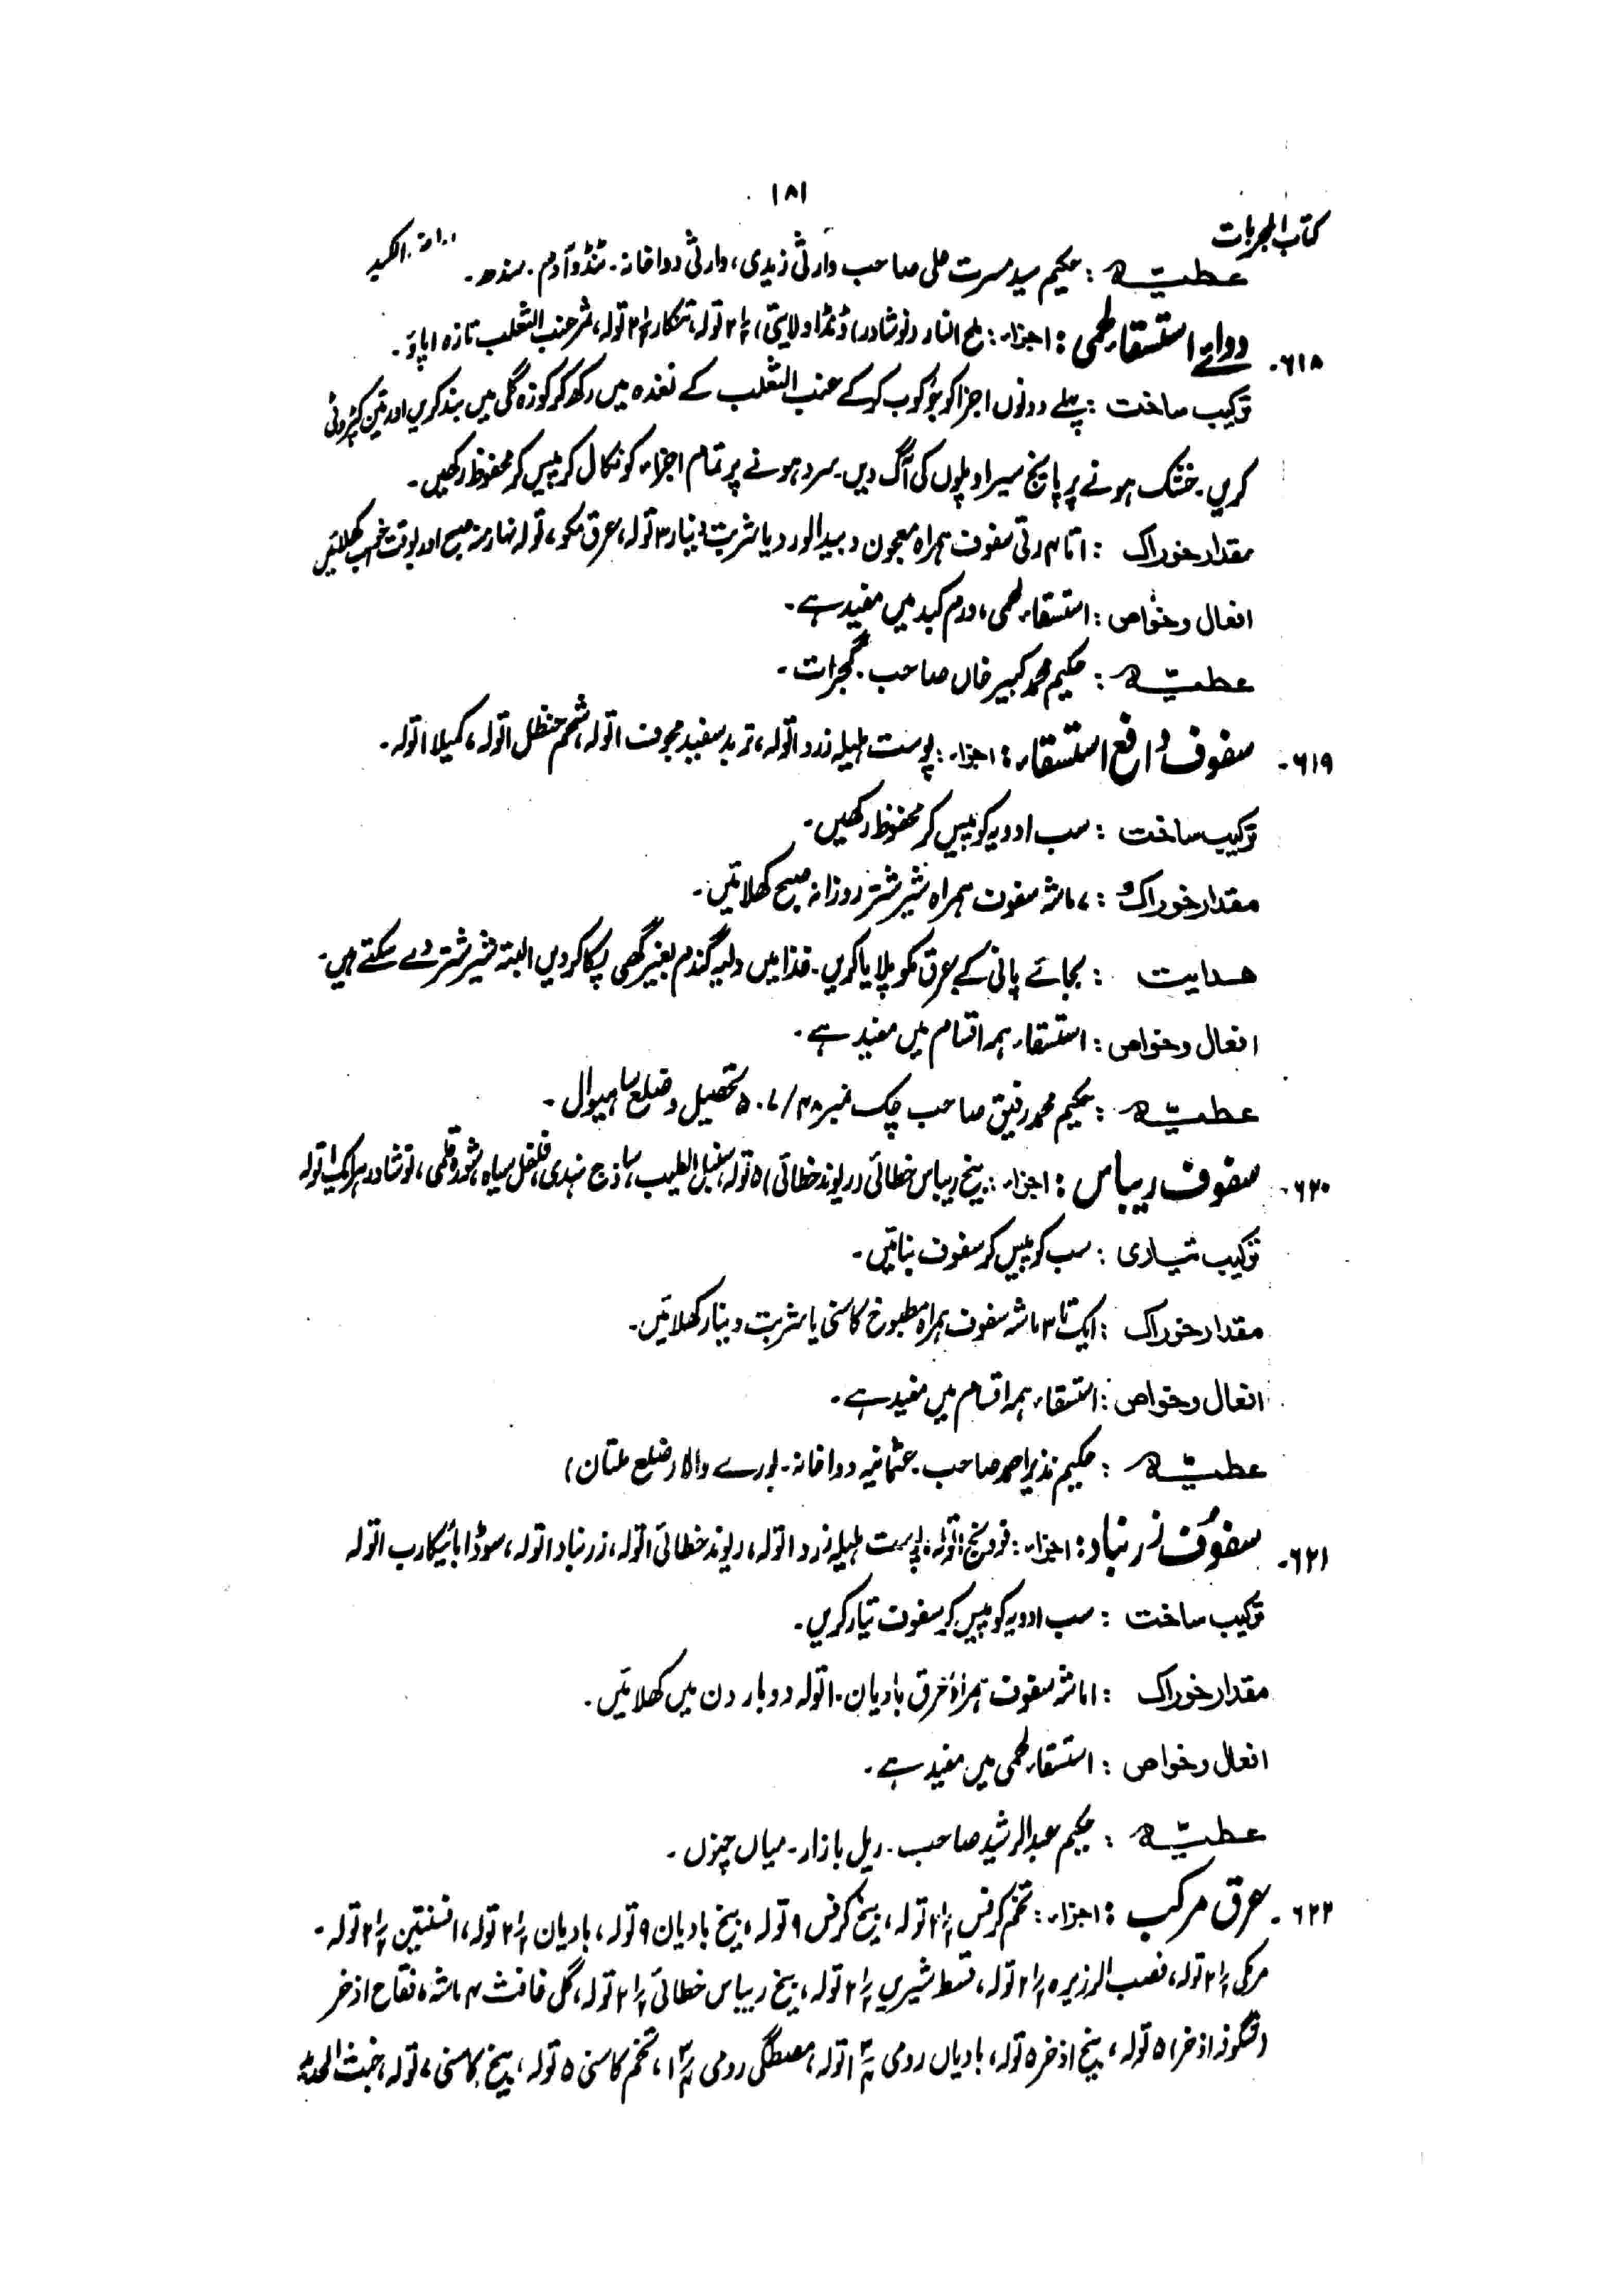 ۱۸۱
کتاب المجربات
عطیّہ : حکیم سید مسرت علی صاحب وارثی زیدی، وارثی دواخانہ۔ ٹنڈو آدم۔ سندھ۔
۶۱۸۔ دوائے استسقاء لحمی : اجزاء : ملح النار (نوشادر) ڈنڈا ولایتی، ۲½ تولہ، تنکار ۲½ تولہ، ثمر عنب الثعلب تازہ ۱ پاؤ۔
ترکیب ساخت : پہلے دونوں اجزا کو جَوکوب کرکے عنب الثعلب کے نغدہ میں رکھ کر کوزہ گلی میں بند کریں اور تین کپڑوٹی
کریں۔ خشک ہونے پر پانچ سیر اوپلوں کی آگ دیں۔ سرد ہونے پر تمام اجزاء کو نکال کر پیس کر محفوظ رکھیں۔
مقدار خوراک : ۱ تا ۴ رتی سفوف ہمراہ معجون دبیدالورد یا شربت دینار ۳ تولہ، عرق مکو ۷ تولہ نہار منہ صبح اور بوقت شب کھلائیں
افعال و خواص : استسقاء لحمی، ورم کبد میں مفید ہے۔
عطیّہ : حکیم محمد کبیر خاں صاحب۔ گجرات۔
۶۱۹۔ سفوف دافع استسقاء : اجزاء : پوست ہلیلہ زرد ۱ تولہ، تربد سفید مجوف ۱ تولہ، شحم حنظل ۱ تولہ، کمیلا ۱ تولہ۔
ترکیب ساخت : سب ادویہ کو پیس کر محفوظ رکھیں۔
مقدار خوراک : ۷ ماشہ سفوف ہمراہ شیر شتر روزانہ صبح کھلائیں۔
ھدایت : بجائے پانی کے عرق مکو پلایا کریں۔ غذا میں دلیہ گندم بغیر گھی پکا کر دیں البتہ شیر شتر دے سکتے ہیں۔
افعال و خواص : استسقاء ہمہ اقسام میں مفید ہے۔
عطیّہ : حکیم محمد رفیق صاحب چک نمبر تحصیل و ضلع ساہیوال۔
۶۲۰۔ سفوف ریباس : اجزاء : بیخ ریباس خطائی (ریوند خطائی) ۵ تولہ، سنبل الطیب، ساذج ہندی، فلفل سیاہ، شورہ قلمی، نوشادر ہر ایک ۱ تولہ
ترکیب تیاری : سب کو پیس کر سفوف بنائیں۔
مقدار خوراک : ایک تا ۳ ماشہ سفوف ہمراہ مطبوخ کاسنی یا شربت دینار کھلائیں۔
افعال و خواص : استسقاء ہمہ اقسام میں مفید ہے۔
عطیّہ : حکیم نذیر احمد صاحب۔ عثمانیہ دواخانہ۔ بورے والا (ضلع ملتان)
۶۲۱۔ سفوف زرنباد : اجزاء : فوتنج ۱ تولہ، پوست ہلیلہ زرد ۱ تولہ، ریوند خطائی ۱ تولہ، زرنباد ۱ تولہ، سوڈا بائیکارب ۱ تولہ
ترکیب ساخت : سب ادویہ کو پیس کر سفوف تیار کریں۔
مقدار خوراک : ۱ ماشہ سفوف ہمراہ عرق بادیان ۱۰ تولہ دو بار دن میں کھلائیں۔
افعال و خواص : استسقاء لحمی میں مفید ہے۔
عطیّہ : حکیم عبدالرشید صاحب۔ ریل بازار۔ میاں چنوں۔
۶۲۲۔ عرق مرکب : اجزاء : تخم کرفس ۲½ تولہ، بیخ کرفس ۹ تولہ، بیخ بادیان ۹ تولہ، بادیان ۲½ تولہ، افسنتین ۲½ تولہ۔
مرمکی ۲½ تولہ، قصب الزریرہ ۲½ تولہ، قسط شیریں ۲½ تولہ، بیخ ریباس خطائی ۲½ تولہ، گل غافث ۴ ماشہ، فقاح اذخر
(شگوفہ اذخر) ۵ تولہ، بیخ اذخر ۵ تولہ، بادیاں رومی ۱¾ تولہ، مصطگی رومی ۱¾، تخم کاسنی ۵ تولہ، بیخ کاسنی ۷ تولہ، خبث الحدید